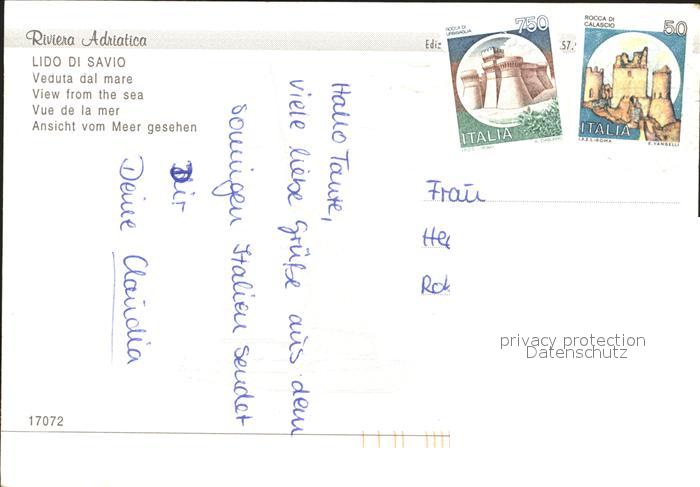 Riviera Adriatica
LIDO DI SAVIO
Veduta dal mare
View from the sea
Vue de la mer
Ansicht vom Meer gesehen
Hallo Tante,
viele liebe Grüße aus dem
sonnigen Italien sendet
Dir
Deine Claudia
17072
Ediz
57.
ROCCA DI
URBISAGLIA
750
ITALIA
I.P.Z.S. ROMA
ROCCA DI
CALASCIO
50
ITALIA
I.P.Z.S. ROMA
E. VANGELLI
Frau
privacy protection
Datenschutz